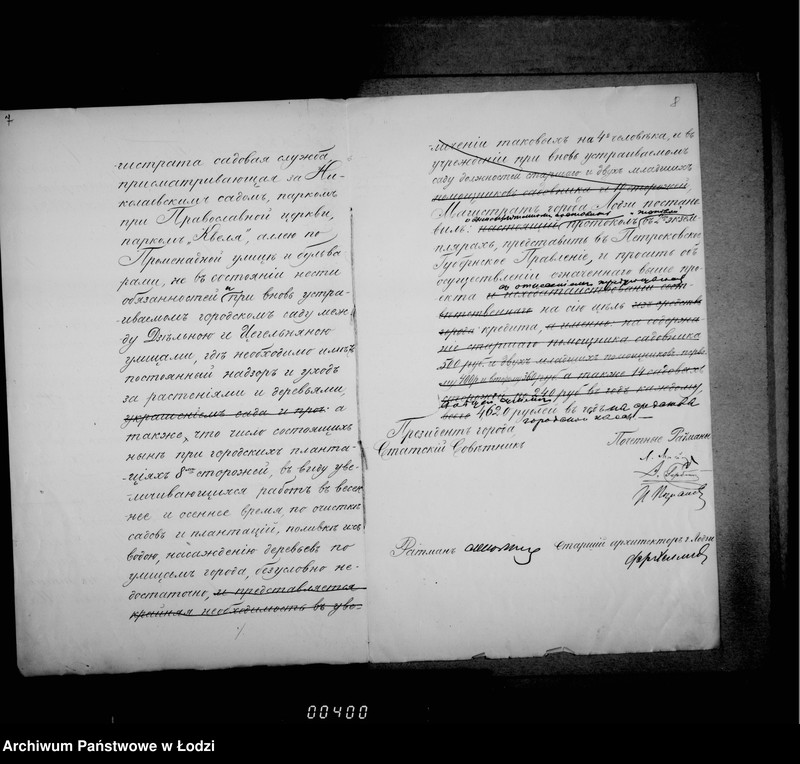 7
гистрата садовая служба,
присматривающая за Ни-
колаевским садом, парком
при Православной церкви,
парком „Квеля", алею по
Променадной улицы и бульва
рами, не въ состояніи нести
обязанностей и при вновь устра-
иваемом городском саду меж-
ду Дѣльною и Цегельняною
улицами, гдѣ необходимо имѣть
постоянный надзор и уход
за растеніями и деревьями,
украшеніем сада и проч. а
также, что число состоящих
нынѣ при городских планта-
ціях 8 сторожей, въ виду уве-
личивающихся работ въ весен
нее и осеннее время, по очистке
садов и плантацій, поливке их
водою, насажденію деревьев по
улицам города, безусловно не-
достаточно, и представляется
крайняя необходимость въ уве-
8
личеніи таковых на 4 человѣка, и въ
учрежденіи при вновь устраиваемом
саду должностей старшаго и двух младших
помощников садовника и 14 сторожей,
Магистрат города Лодзи постано
вил: настоящій протокол в 2 экзем
плярах, представить въ Петроковское
Губернское Правленіе, и просить об
осуществленіи означеннаго выше про-
екта
на сію цѣль из средств
города кредита, а именно: на содержа-
ніе старшаго помощника садовника
500 руб. и двух младших помощников перво-
му 400 р. и второму 360 руб. а также 14 садовых
сторожей по 240 руб. въ год каждому,
всего 4620 рублей въ год на средства
городской кассы
Президент города,
Статскій Совѣтник
Почетные Ратманы
Ратман
Старшій архитектор г. Лодзи
00400
Archiwum Państwowe w Łodzi